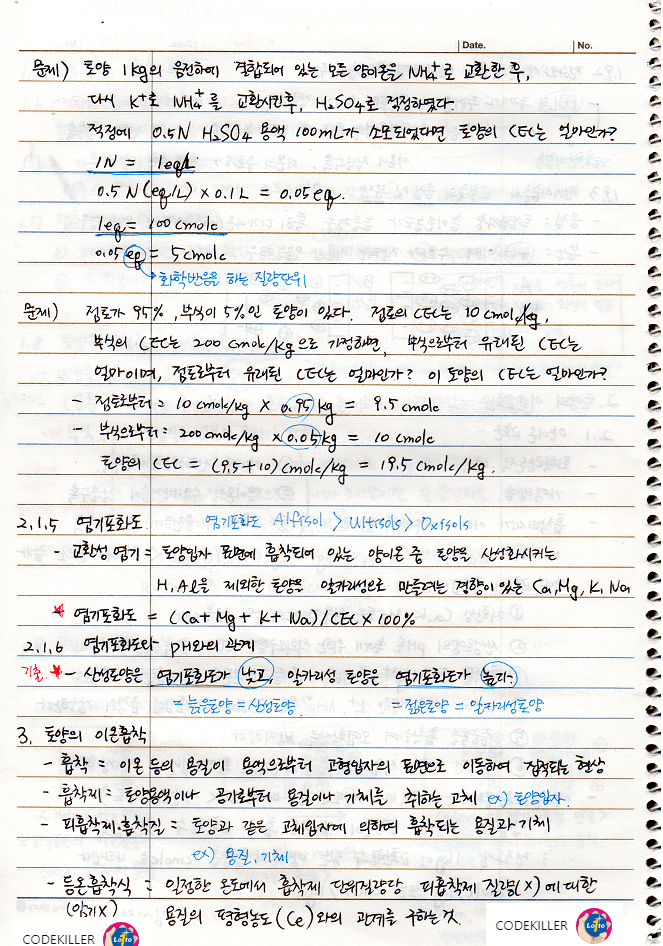 Date.
No.
문제) 토양 1kg의 음전하에 결합되어 있는 모든 양이온을 NH₄⁺로 교환한 후,
다시 K⁺로 NH₄⁺를 교환시킨후, H₂SO₄로 적정하였다.
적정에 0.5N H₂SO₄ 용액 100mL가 소모되었다면 토양의 CEC는 얼마인가?
1N = 1eq/L
0.5 N(eq/L) × 0.1L = 0.05 eq.
1eq = 100 cmolc
0.05 eq = 5 cmolc
화학반응을 하는 질량단위
문제) 점토가 95%, 부식이 5%인 토양이 있다. 점토의 CEC는 10 cmolc/kg,
부식의 CEC는 200 cmolc/kg으로 가정하면, 부식으로부터 유래된 CEC는
얼마이며, 점토로부터 유래된 CEC는 얼마인가? 이 토양의 CEC는 얼마인가?
- 점토로부터 = 10 cmolc/kg × 0.95 kg = 9.5 cmolc
- 부식으로부터 = 200 cmolc/kg × 0.05 kg = 10 cmolc
토양의 CEC = (9.5 + 10) cmolc/kg = 19.5 cmolc/kg.
2.1.5 염기포화도 염기포화도 Alfisol > Ultisols > Oxisols
- 교환성 염기 = 토양입자 표면에 흡착되어 있는 양이온 중 토양을 산성화시키는
H, Al을 제외한 토양을 알카리성으로 만들려는 경향이 있는 Ca, Mg, K, Na
★ 염기포화도 = (Ca + Mg + K + Na) / CEC × 100%
2.1.6 염기포화도와 pH와의 관계
기출. ★ - 산성토양은 염기포화도가 낮고, 알카리성 토양은 염기포화도가 높다.
= 늙은토양 = 산성토양. = 젊은토양 = 알카리성토양
3. 토양의 이온흡착
- 흡착 = 이온 등의 용질이 용액으로부터 고형입자의 표면으로 이동하여 집적되는 현상
- 흡착제 = 토양용액이나 공기로부터 용질이나 기체를 취하는 고체 ex) 토양입자.
- 피흡착제·흡착질 = 토양과 같은 고체입자에 의하여 흡착되는 용질과 기체
ex) 용질, 기체
- 등온흡착식 = 일정한 온도에서 흡착제 단위질량당 피흡착제 질량(X)에 대한
(암기X) 용질의 평형농도(Ce)와의 관계를 구하는 것
CODEKILLER Lotto
CODEKILLER Lotto